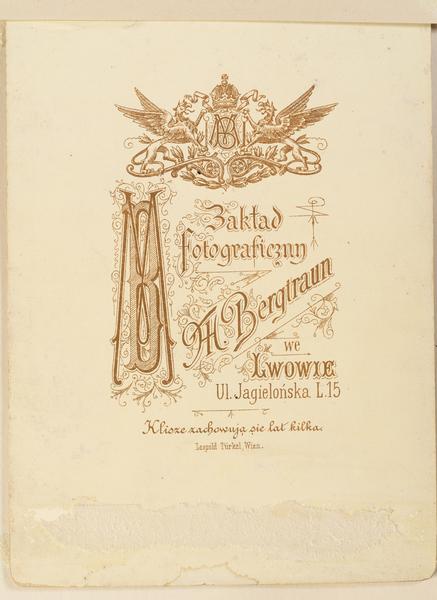 MB
MB
Zakład
Fotograficzny
M. Bergtraun
we
LWOWIE
Ul. Jagielońska L.15
Klisze zachowują się lat kilka.
Leopold Türkel, Wien.